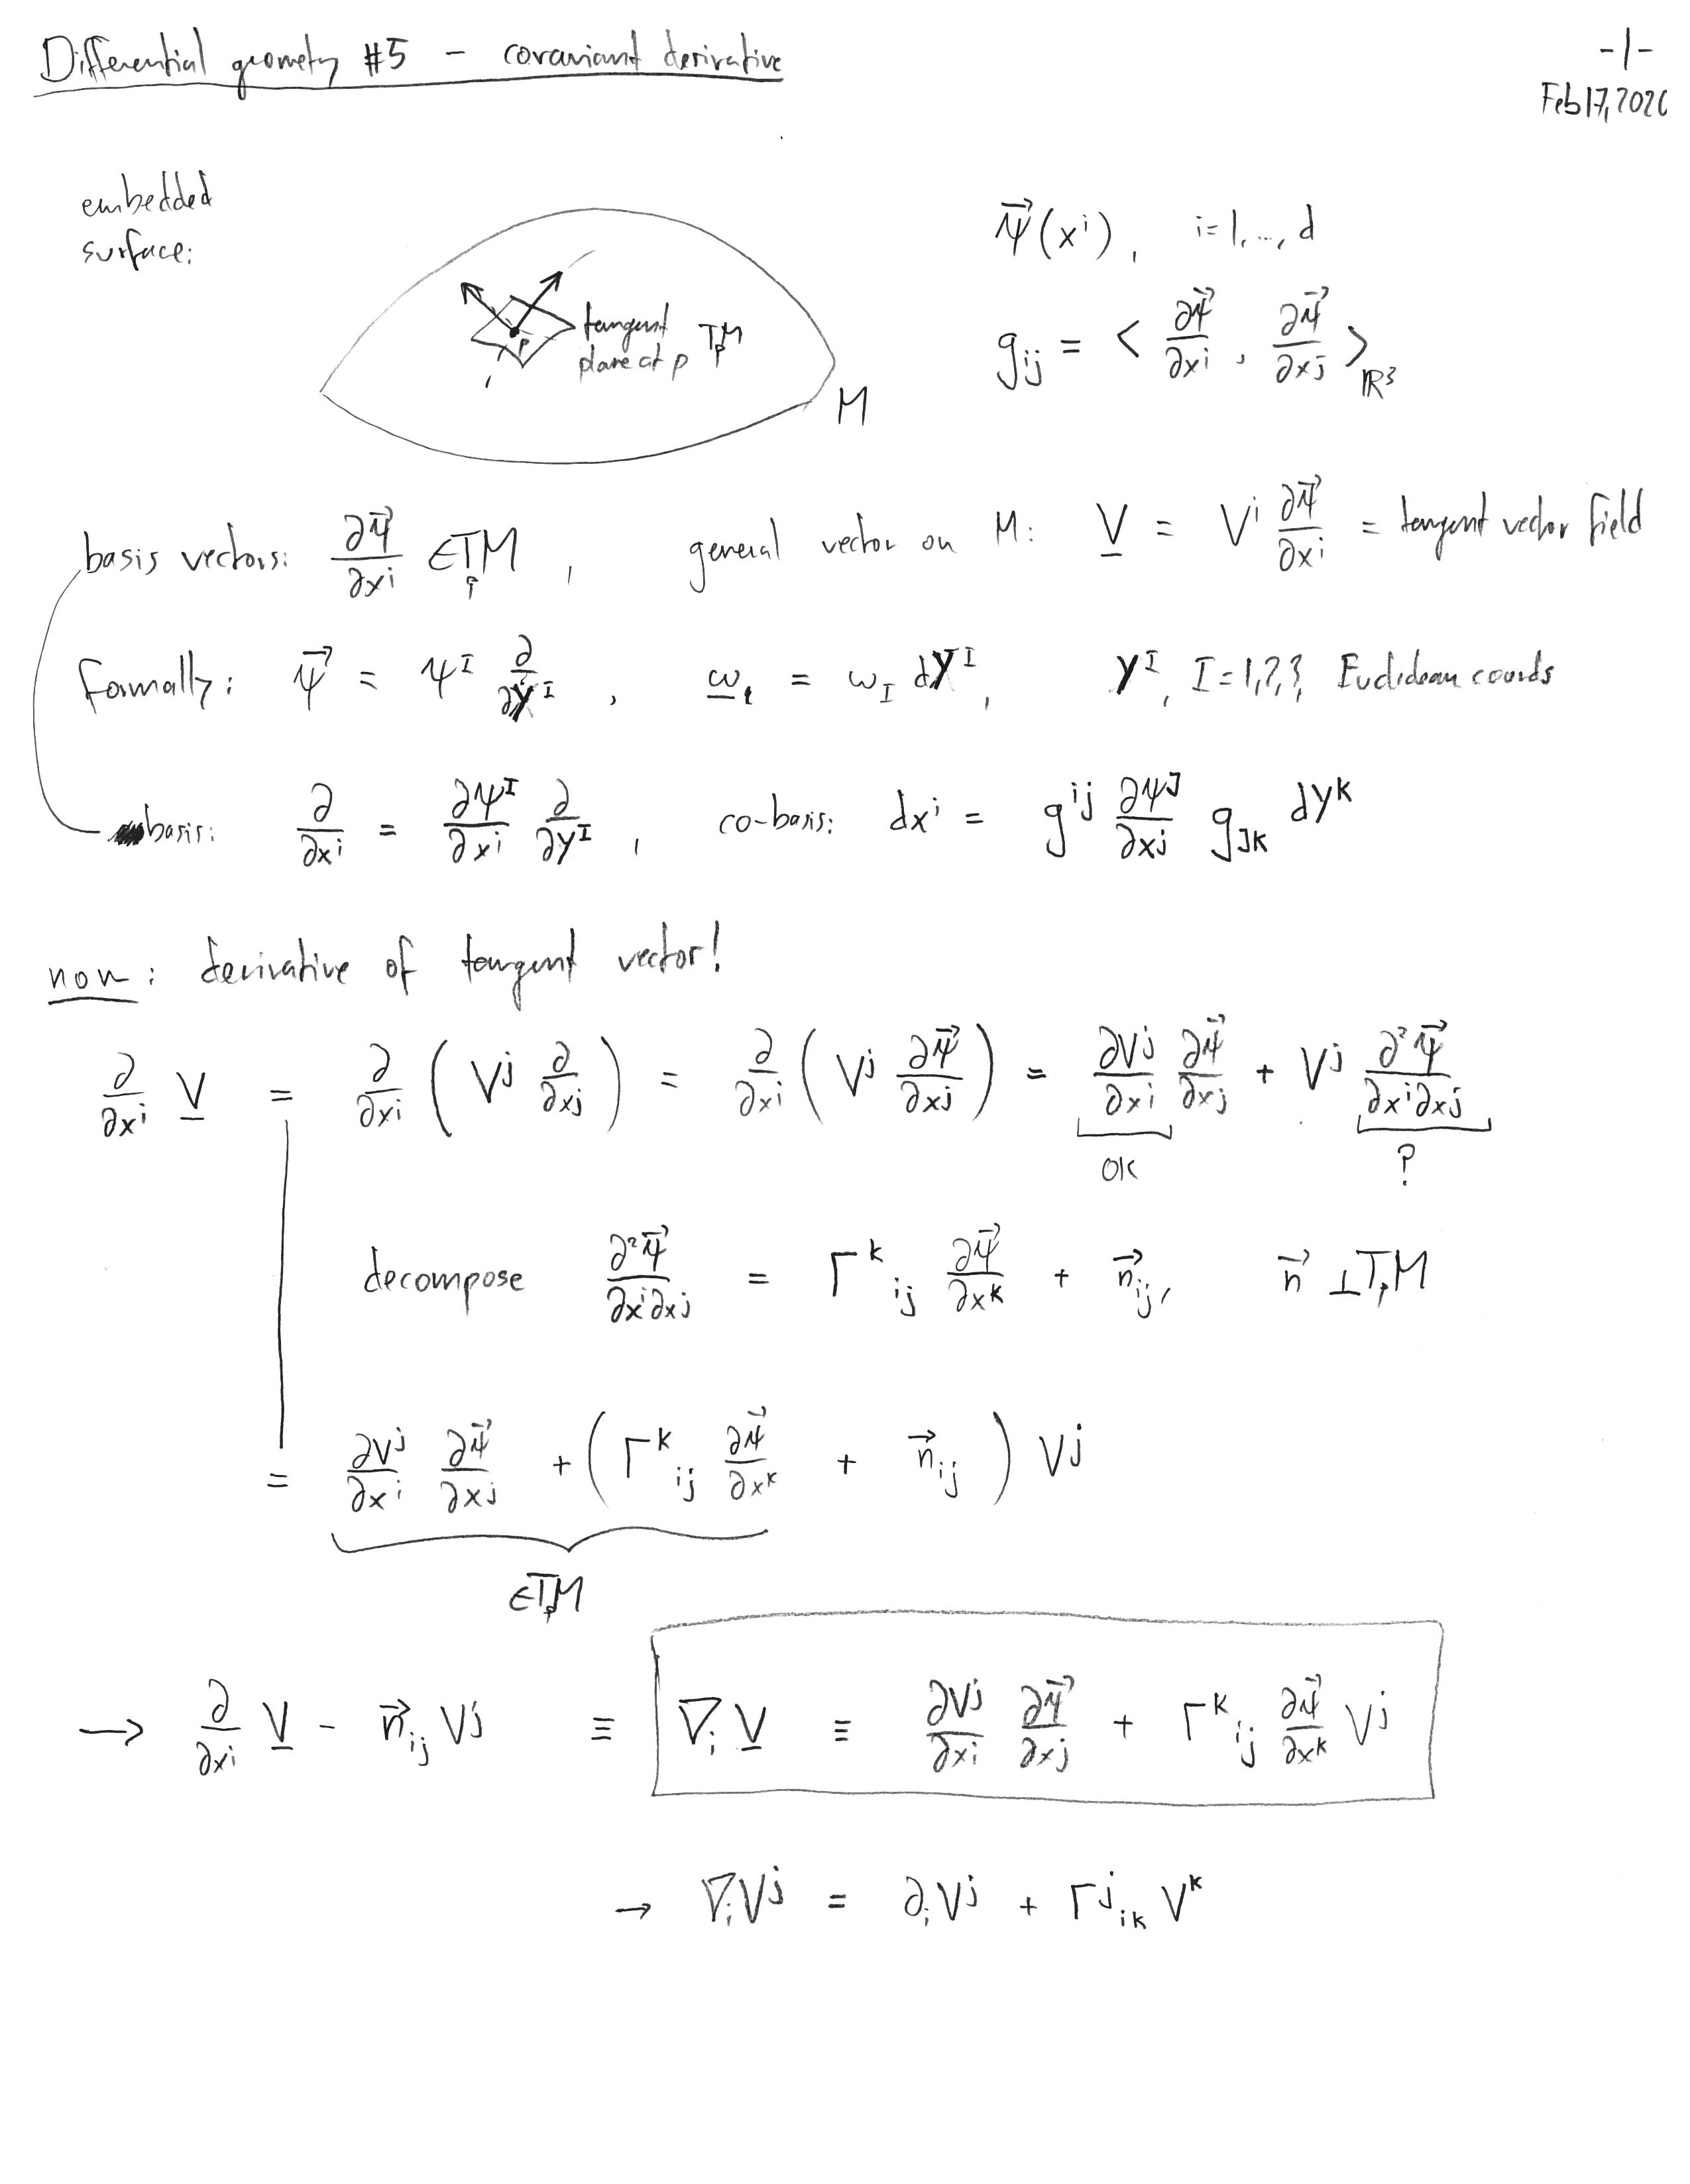 Differential geometry #5 – covariant derivative
-1-
Feb 17, 2020
embedded
surface:
tangent
plane at p T_pM
p
M
\vec{Ψ}(x^i), i=1,..., d
g_{ij} = < ∂\vec{Ψ}/∂x^i , ∂\vec{Ψ}/∂x^j >_{ℝ^3}
basis vectors: ∂\vec{Ψ}/∂x^i ∈ T_pM , general vector on M: \underline{V} = V^i ∂\vec{Ψ}/∂x^i = tangent vector field
formally: \vec{Ψ} = Ψ^I ∂/∂Y^I , \underline{ω} = ω_I dY^I, Y^I, I=1,2,3, Euclidean coords
basis: ∂/∂x^i = ∂Ψ^I/∂x^i ∂/∂Y^I , co-basis: dx^i = g^{ij} ∂Ψ^J/∂x^j g_{JK} dY^K
now: derivative of tangent vector!
∂/∂x^i \underline{V} = ∂/∂x^i ( V^j ∂/∂x^j ) = ∂/∂x^i ( V^j ∂\vec{Ψ}/∂x^j ) = ∂V^j/∂x^i ∂\vec{Ψ}/∂x^j + V^j ∂²\vec{Ψ}/∂x^i∂x^j
OK ?
decompose ∂²\vec{Ψ}/∂x^i∂x^j = Γ^k_{ij} ∂\vec{Ψ}/∂x^k + \vec{n}_{ij}, \vec{n} ⊥ T_pM
= ∂V^j/∂x^i ∂\vec{Ψ}/∂x^j + ( Γ^k_{ij} ∂\vec{Ψ}/∂x^k + \vec{n}_{ij} ) V^j
∈ T_pM
→ ∂/∂x^i \underline{V} - \vec{n}_{ij} V^j ≡ ∇_i \underline{V} ≡ ∂V^j/∂x^i ∂\vec{Ψ}/∂x^j + Γ^k_{ij} ∂\vec{Ψ}/∂x^k V^j
→ ∇_i V^j = ∂_i V^j + Γ^j_{ik} V^k